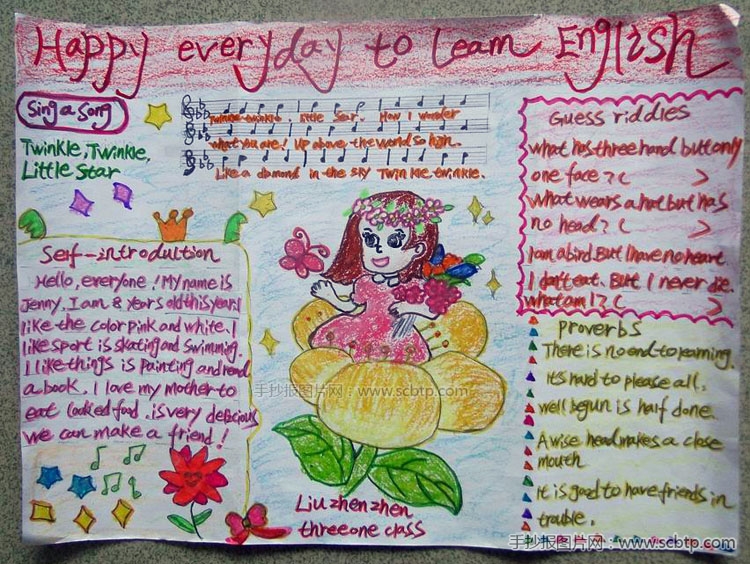 Happy everyday to learn English
Sing a Song
Twinkle, Twinkle,
Little Star
Twinkle twinkle. little star. How I wonder
what you are! Up above the world so high.
Like a diamond in the sky Twinkle twinkle.
Self-introduction
Hello, everyone! My name is
Jenny, I am 8 years old this year. I
like the color pink and white. I
like sport is skating and swimming.
I like things is painting and read
a book. I love my mother to
eat cooked food. is very delicious
we can make a friend!
Liu zhen zhen
three one class
Guess riddles
what has three hand but only
one face? ( )
what wears a hat but has
no head? ( )
I am a bird. But I have no heart
I don't eat. But I never die.
what am I? ( )
Proverbs
There is no end to learning.
It's hard to please all.
well begun is half done.
A wise head makes a close
mouth
it is good to have friends in
trouble.
手抄报图片网：www.scbtp.com
手抄报图片网：www.scbtp.com